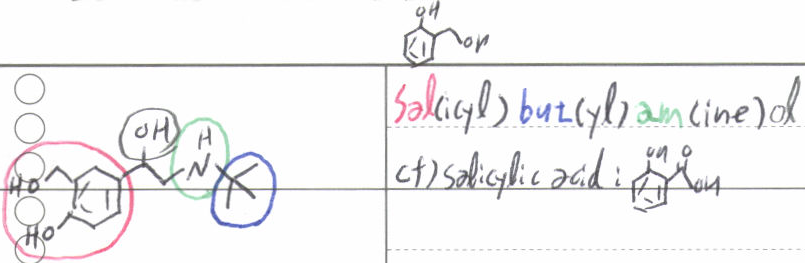 OH
OH
Sal(icyl) but(yl) am(ine) ol
OH
H
N
HO
HO
cf) salicylic acid :
OH
O
OH